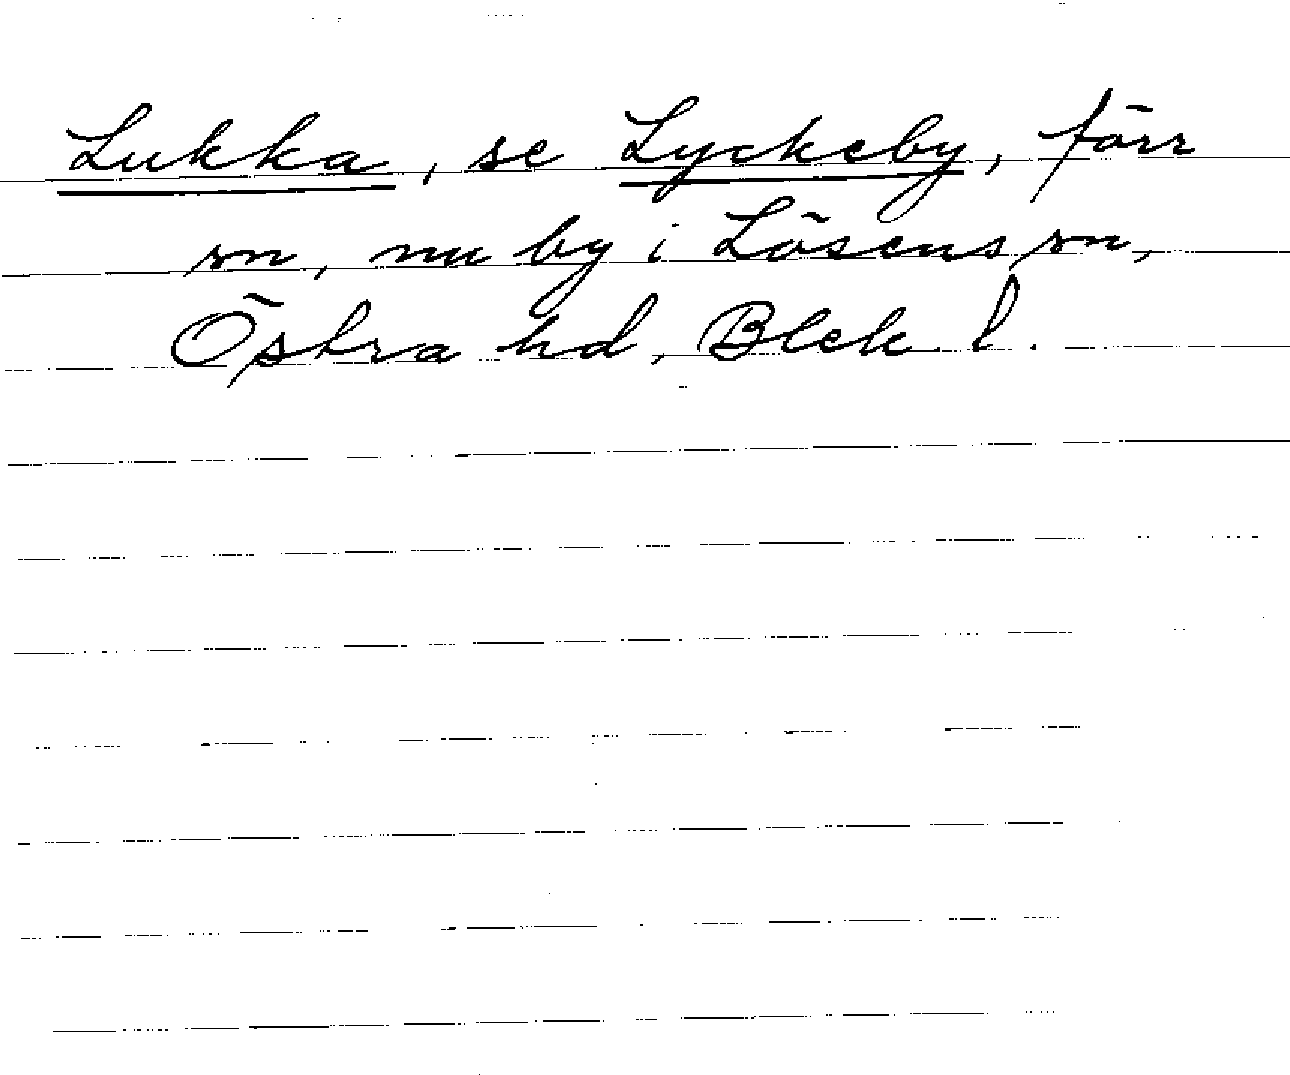 Lukka, se Lyckeby, förr
sn, nu by i Lösens sn,
Östra hd, Blek l.